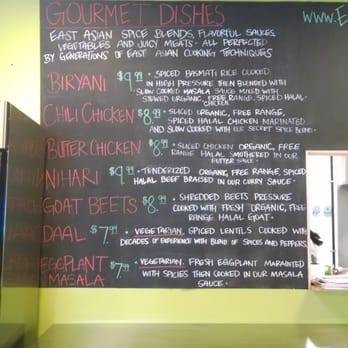 GOURMET DISHES
WWW.E
EAST ASIAN SPICE BLENDS, FLAVORFUL SAUCES,
VEGETABLES AND JUICY MEATS. ALL PERFECTED
BY GENERATIONS OF EAST ASIAN COOKING TECHNIQUES
BIRYANI $9.99 • SPICED BASMATI RICE COOKED
IN HIGH PRESSURE THEN BLENDED WITH
SLOW COOKED MASALA SAUCE MIXED WITH
STEWED ORGANIC, FREE RANGE, SPICED HALAL
CHICKEN
CHILI CHICKEN $8.99 • SLICED ORGANIC, FREE RANGE,
SPICED HALAL CHICKEN MARINATED
AND SLOW COOKED WITH OUR SECRET SPICE BLEND.
BUTTER CHICKEN $8.99 • SLICED CHICKEN ORGANIC, FREE
RANGE HALAL SMOTHERED IN OUR
BUTTER SAUCE
NIHARI $9.99 • TENDERIZED ORGANIC, FREE RANGE, SPICED
HALAL BEEF BRAISED IN OUR CURRY SAUCE
GOAT BEETS $8.99 • SHREDDED BEETS PRESSURE
COOKED WITH FRESH ORGANIC, FREE
RANGE HALAL GOAT.
DAAL $7.99 • VEGETARIAN, SPICED LENTILS COOKED WITH
DECADES OF EXPERIENCE WITH BLEND OF SPICES AND PEPPERS
EGGPLANT $7.99 • VEGETARIAN. FRESH EGGPLANT MARINATED
MASALA WITH SPICES THEN COOKED IN OUR MASALA
SAUCE